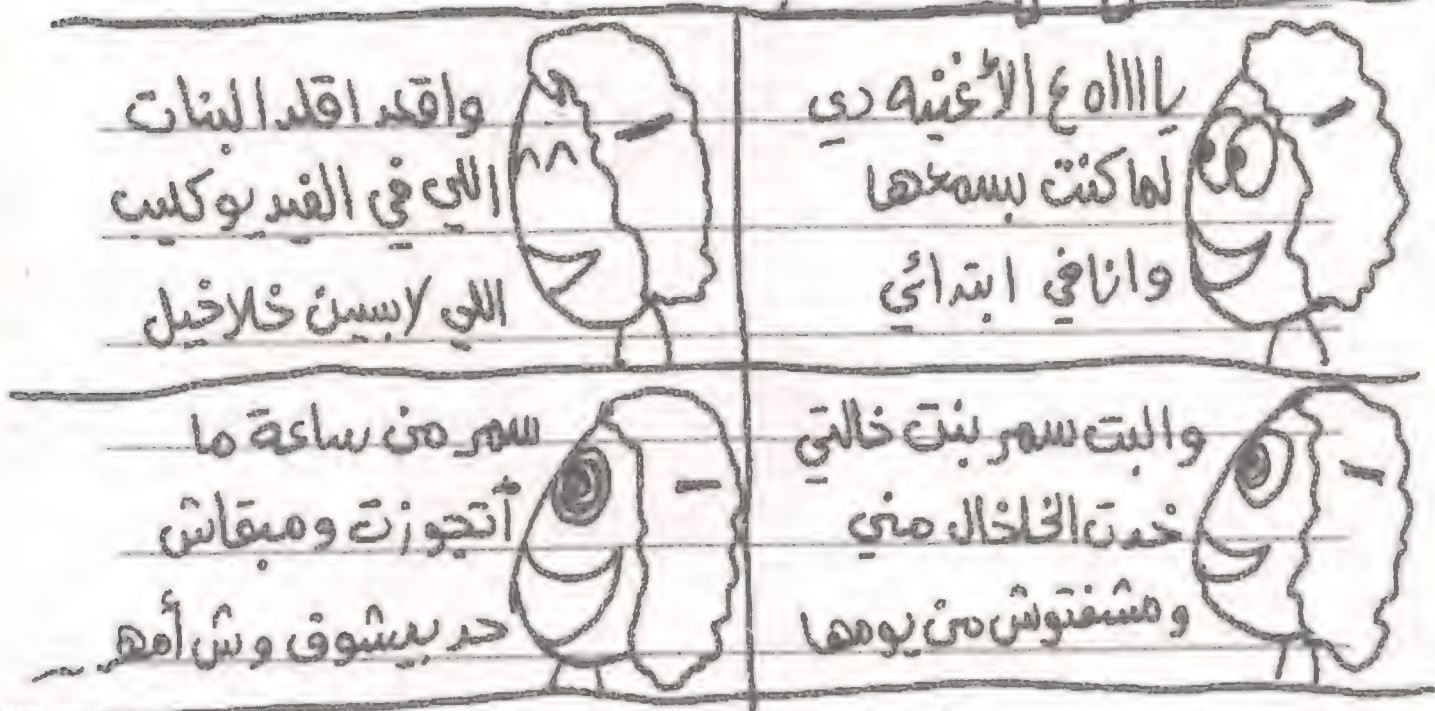 ياااااه ع الأغنيه دي
لما كنت بسمعها
وانا في ابتدائي
واقعد اقلد البنات
اللي في الفيديو كليب
اللي لابسين خلاخيل
والبت سمر بنت خالتي
خدت الخلخال مني
ومشفتوش من يومها
سمر من ساعة ما
أتجوزت ومبقاش
حد بيشوف وش أمها